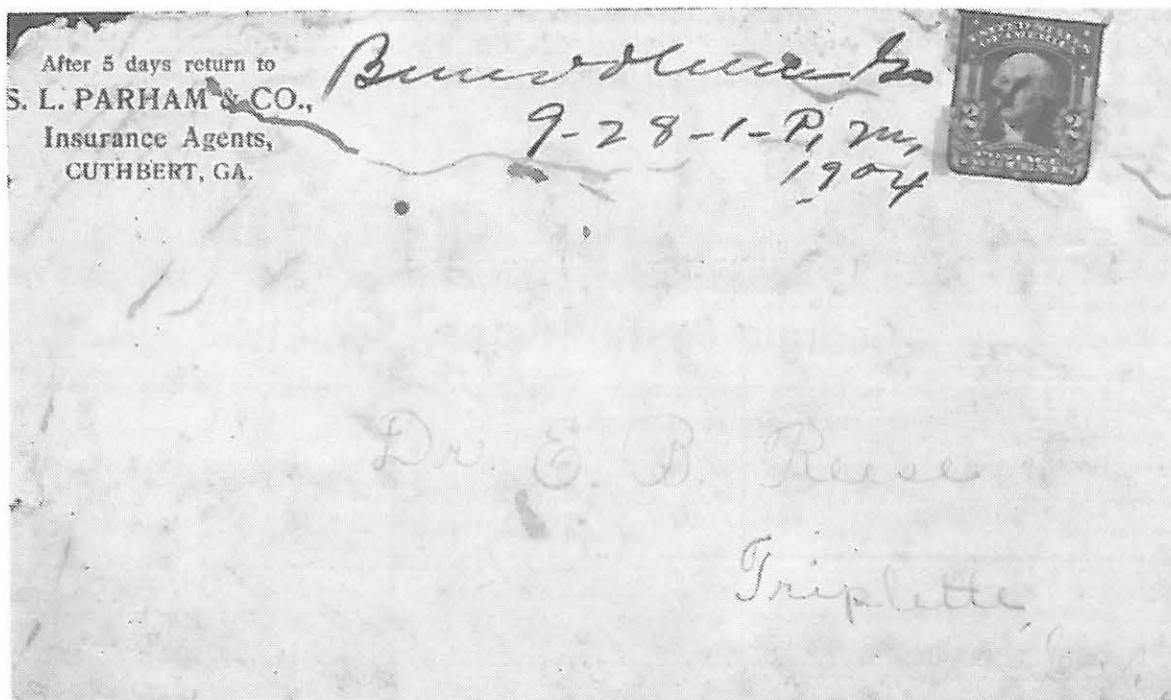 After 5 days return to
S. L. PARHAM & CO.,
Insurance Agents,
CUTHBERT, GA.
Benevolence Ga
9-28-1-P, m,
1904
2 2
Dr. E. B. Reese
Triplette,